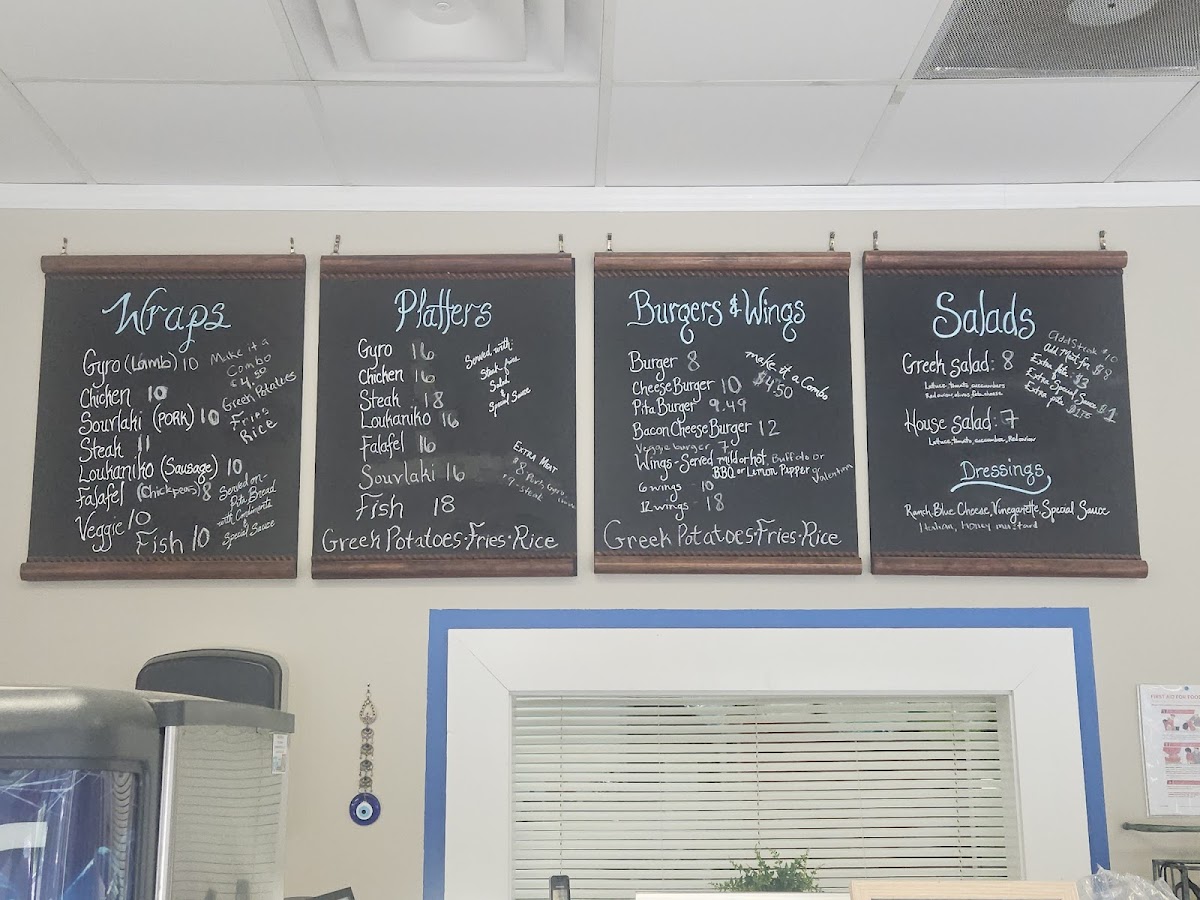 Wraps
Gyro (Lamb) 10
Chicken 10
Souvlaki (PORK) 10
Steak 11
Loukaniko (Sausage) 10
Falafel (Chickpeas) 8
Veggie 10
Fish 10
Make it a
Combo
4.50
Greek Potatoes
Fries
Rice
Served on
Pita Bread
with Condiments
&
Special Sauce
Platters
Gyro 16
Chicken 16
Steak 18
Loukaniko 16
Falafel 16
Souvlaki 16
Fish 18
Served with:
Steak fries
Salad
&
Special Sauce
EXTRA MEAT
$8 - Pork, Gyro
$9 - Steak
Greek Potatoes·Fries·Rice
Burgers & Wings
Burger 8
CheeseBurger 10
Pita Burger 9.49
Bacon CheeseBurger 12
Veggie burger 7
Wings - Served mild or hot, Buffalo or
BBQ or Lemon Pepper or Valentina
6 wings - 10
12 wings - 18
make it a Combo
$4.50
Greek Potatoes·Fries·Rice
Salads
Greek salad: 8
Lettuce, tomato, cucumbers
Red onion, olives, feta cheese
House salad: 7
Lettuce, tomato, cucumber, Red onion
Add Steak $10
Add Meat for $8
Extra feta: $3
Extra Special Sauce $1
Extra pita $1.75
Dressings
Ranch, Blue Cheese, Vinegarette, Special Sauce
Italian, honey mustard
FIRST AID FOR